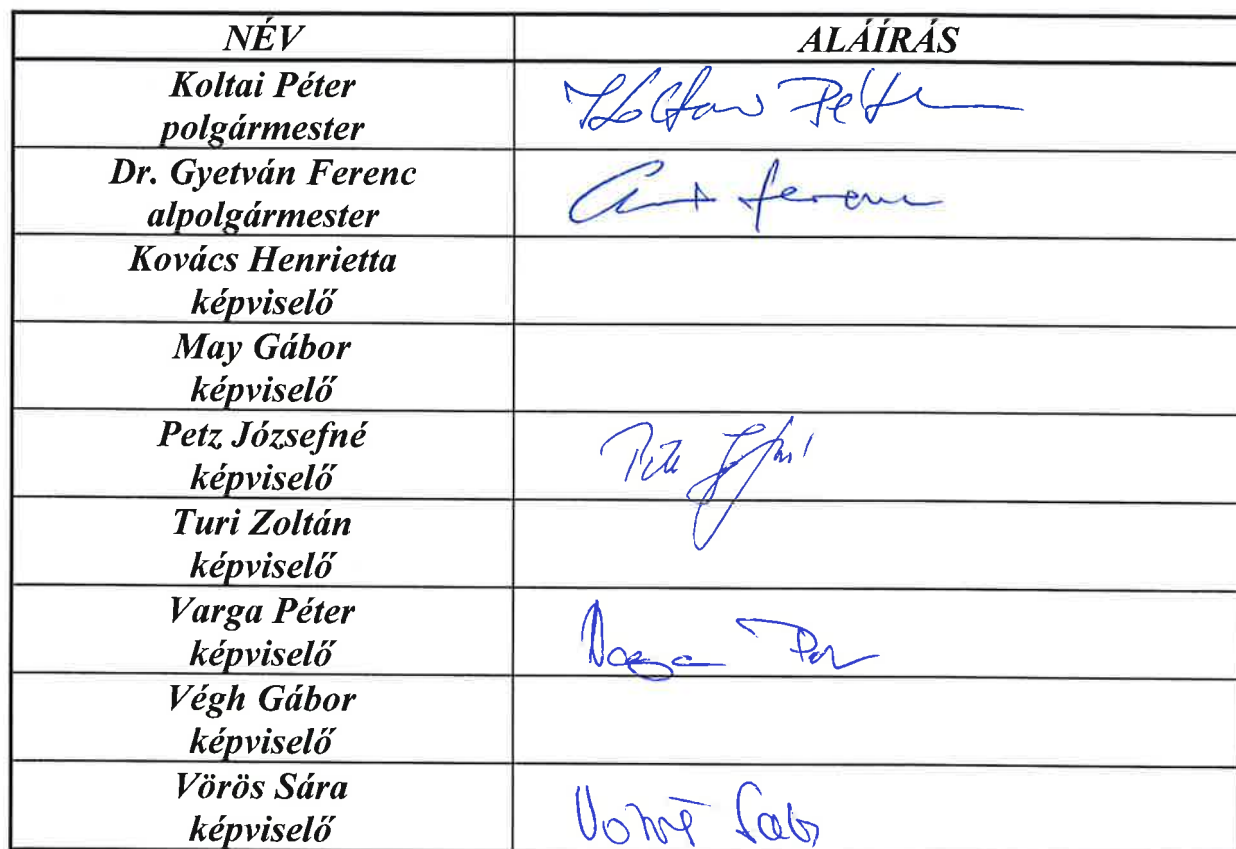 NÉV ALÁÍRÁS
Koltai Péter
polgármester
Dr. Gyetván Ferenc
alpolgármester
Ferenc
Kovács Henrietta
képviselő
May Gábor
képviselő
Petz Józsefné
képviselő
Turi Zoltán
képviselő
Varga Péter
képviselő
Végh Gábor
képviselő
Vörös Sára
képviselő